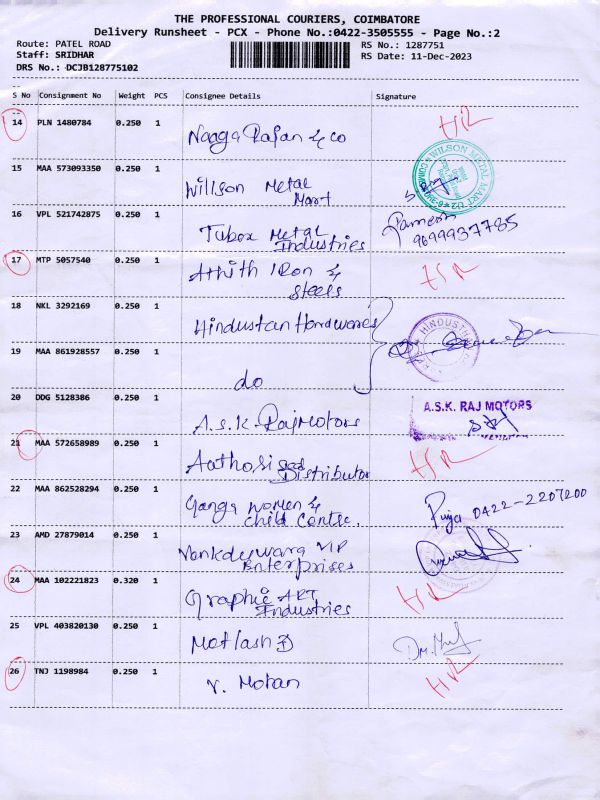 THE PROFESSIONAL COURIERS, COIMBATORE
Delivery Runsheet - PCX - Phone No.:0422-3505555 - Page No.:2
Route: PATEL ROAD
Staff: SRIDHAR
DRS No.: DCJB128775102
RS No.: 1287751
RS Date: 11-Dec-2023
S No Consignment No Weight PCS Consignee Details Signature
14 PLN 1480784 0.250 1
Naaga Rajan & co
15 MAA 573093350 0.250 1
Willson Metal
Mart
WILSON METAL MART
16 VPL 521742875 0.250 1
Tubox Metal
Industries
Ramesh
9699937785
17 MTP 5057540 0.250 1
Athith Iron &
Steels
18 NKL 3292169 0.250 1
Hindustan Hardwares
HINDUSTHAN
19 MAA 861928557 0.250 1
do
20 DDG 5128386 0.250 1
A.S.K. Rajmotors
A.S.K. RAJ MOTORS
21 MAA 572658989 0.250 1
Distributor
22 MAA 862528294 0.250 1
Ganga Women &
Child Centre.
Puja 0422-2207200
23 AMD 27879014 0.250 1
VIP
Enterprises
24 MAA 102221823 0.320 1
Graphic ART
Industries
25 VPL 403820130 0.250 1
26 TNJ 1198984 0.250 1
V. Mohan